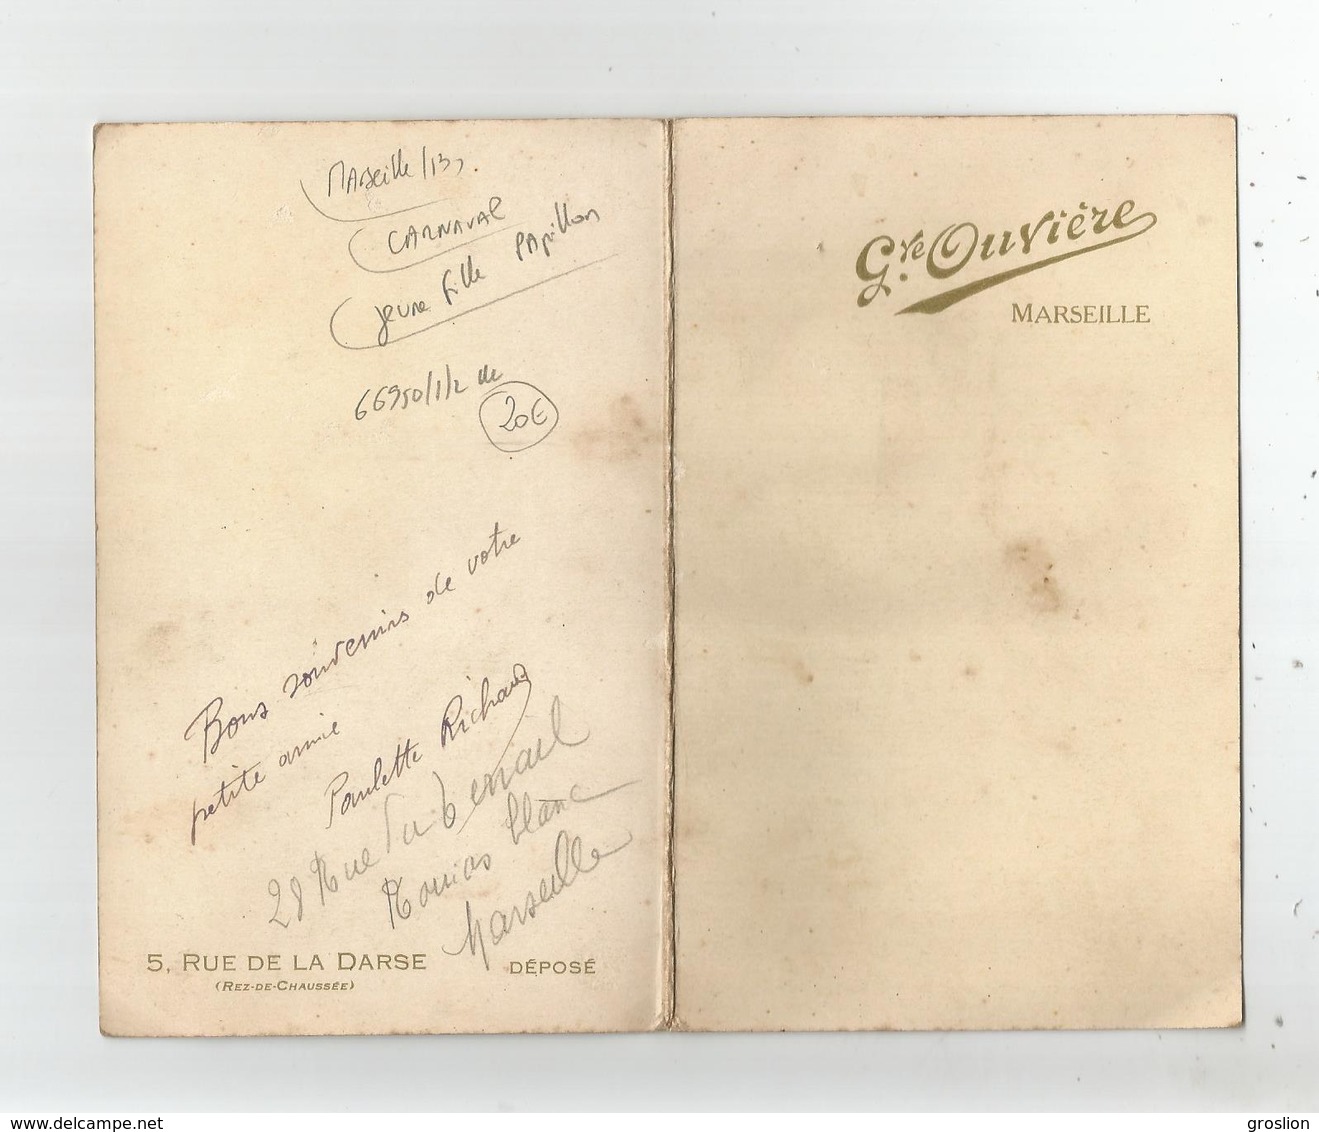 Marseille (13)
CARNAVAL
jeune fille PAPillon
66950/1/2 de
20€
Bons souvenirs de votre
petite amie
Paulette Richaud
28 Rue
blanc
Marseille
5, RUE DE LA DARSE
(REZ-DE-CHAUSSÉE)
DÉPOSÉ
Gve Ouvière
MARSEILLE
www.delcampe.net
groslion